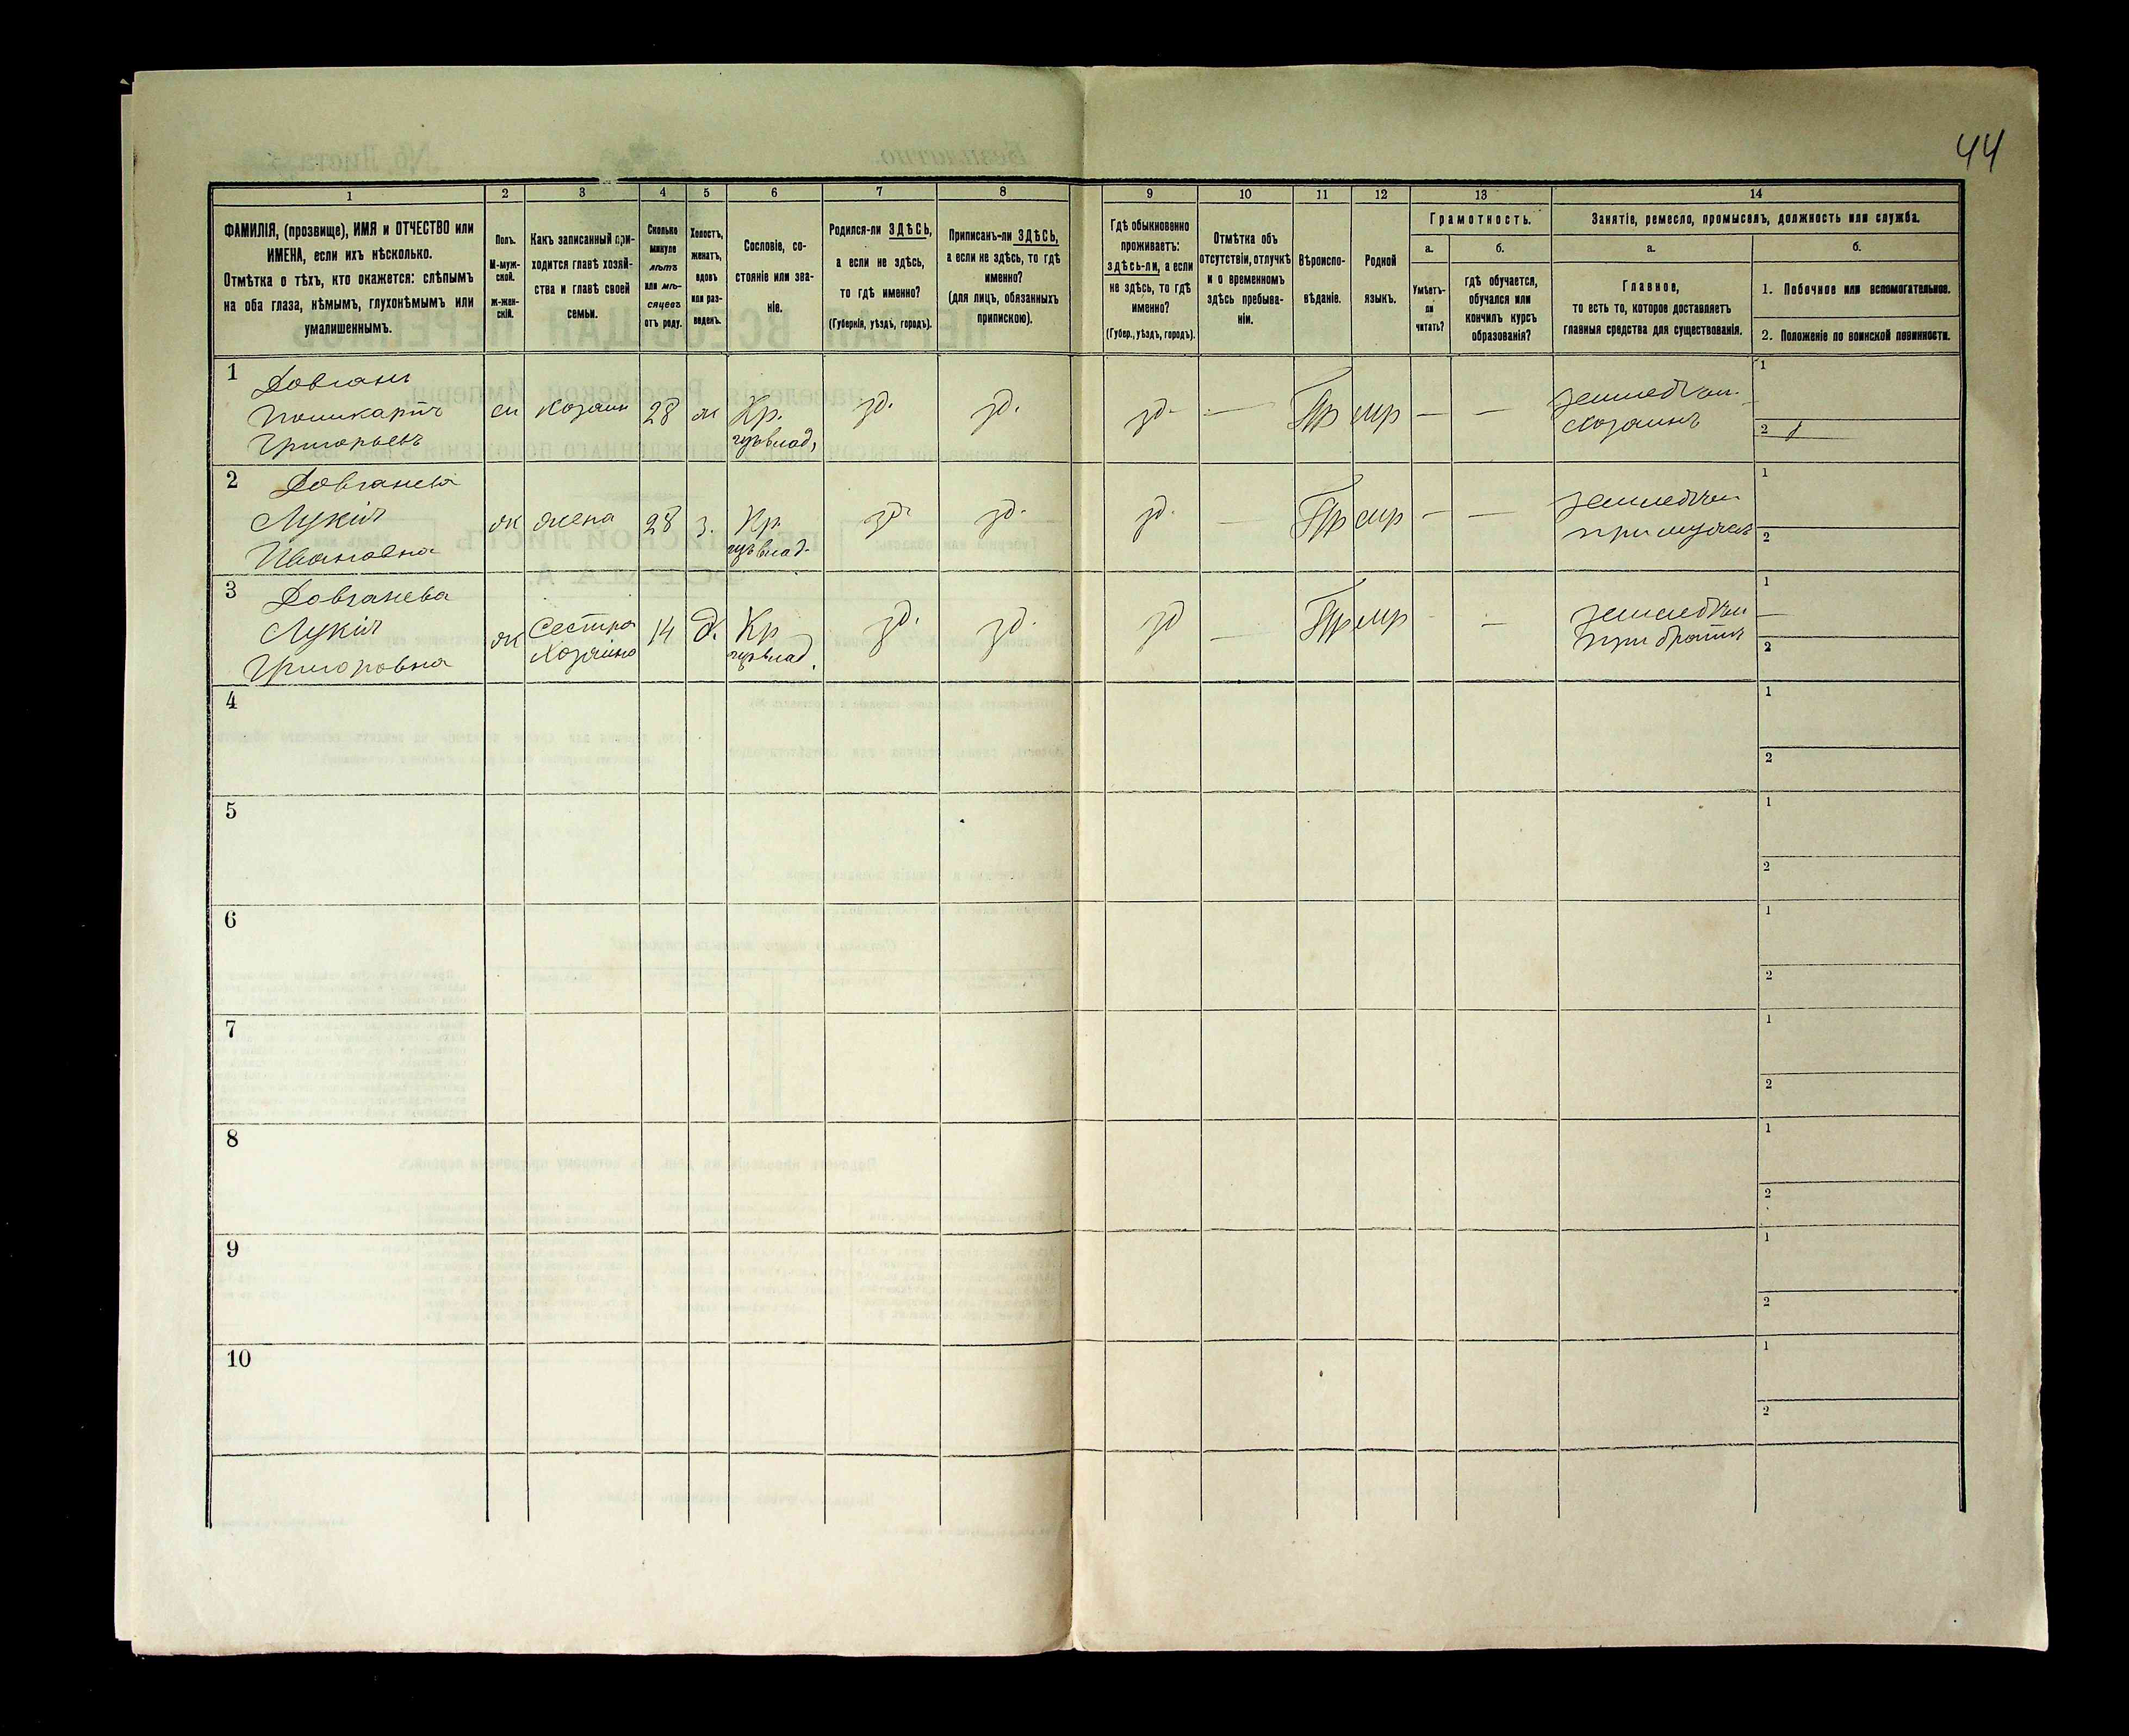 44
1 2 3 4 5 6 7 8 9 10 11 12 13 14
ФАМИЛІЯ, (прозвище), ИМЯ и ОТЧЕСТВО или
ИМЕНА, если ихъ нѣсколько.
Отмѣтка о тѣхъ, кто окажется: слѣпымъ
на оба глаза, нѣмымъ, глухонѣмымъ или
умалишеннымъ.
Полъ.
М-муж-
ской.
ж-жен-
скій.
Какъ записанный при-
ходится главѣ хозяй-
ства и главѣ своей
семьи.
Сколько
минуло
лѣтъ
или мѣ-
сяцевъ
отъ роду.
Холостъ,
женатъ,
вдовъ
или раз-
веденъ.
Сословіе, со-
стояніе или зва-
ніе.
Родился-ли ЗДѢСЬ,
а если не здѣсь,
то гдѣ именно?
(Губернія, уѣздъ, городъ).
Приписанъ-ли ЗДѢСЬ,
а если не здѣсь, то гдѣ
именно?
(для лицъ, обязанныхъ
припискою).
Гдѣ обыкновенно
проживаетъ:
здѣсь-ли, а если
не здѣсь, то гдѣ
именно?
(Губер., уѣздъ, городъ).
Отмѣтка объ
отсутствіи, отлучкѣ
и о временномъ
здѣсь пребыва-
ніи.
Вѣроиспо-
вѣданіе.
Родной
языкъ.
Грамотность.
а.
Умѣетъ-
ли
читать?
б.
гдѣ обучается,
обучался или
кончилъ курсъ
образованія?
Занятіе, ремесло, промыселъ, должность или служба.
а.
Главное,
то есть то, которое доставляетъ
главныя средства для существованія.
б.
1. Побочное или вспомогательное.
2. Положеніе по воинской повинности.
1
Довгань
Поликарпъ
Григорьевъ
м хозяин 28 ж Кр.
зд. зд. зд. — Пр мр — —
хозяинъ
1
2
2
Довганева
Лукія
Ивановна
ж жена 28 з. Кр.
зд. зд. зд. — Пр мр — —
при мужѣ
1
2
3
Довганева
Лукія
Григоровна
ж Сестра
хозяина
14 д. Кр
зд. зд. зд — Пр мр - —
при братѣ
1
2
4
1
2
5
1
2
6
1
2
7
1
2
8
1
2
9
1
2
10
1
2